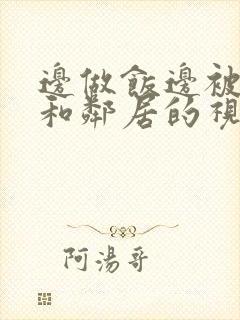 邊做飯邊被
和鄰居的視
阿湯哥